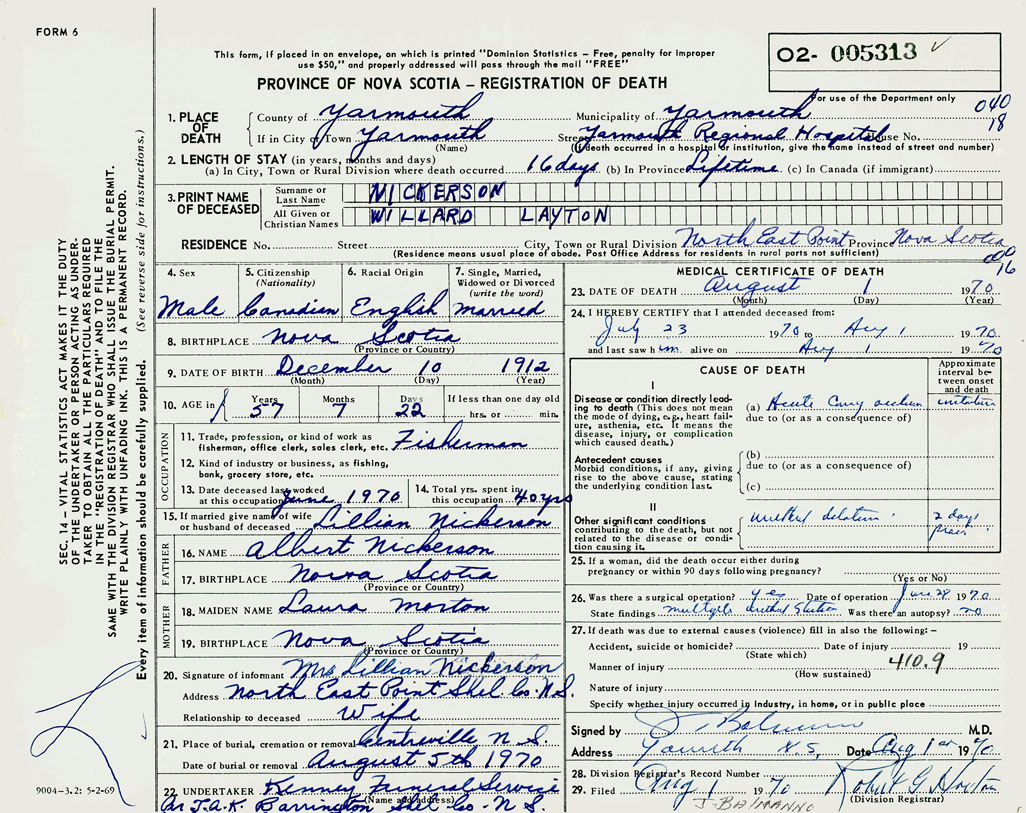 FORM 6
02- 005313
This form, if placed in an envelope, on which is printed "Dominion Statistics – Free, penalty for improper
use $50," and properly addressed will pass through the mail "FREE"
PROVINCE OF NOVA SCOTIA – REGISTRATION OF DEATH
For use of the Department only
040
18
1. PLACE OF DEATH
County of Yarmouth Municipality of Yarmouth
If in City or Town Yarmouth Street Yarmouth Regional Hospital House No.
(Name) (If death occurred in a hospital or institution, give the name instead of street and number)
2. LENGTH OF STAY (in years, months and days)
(a) In City, Town or Rural Division where death occurred 16 days (b) In Province Lifetime (c) In Canada (if immigrant)
3. PRINT NAME OF DECEASED
Surname or Last Name NICKERSON
All Given or Christian Names WILLARD LAYTON
RESIDENCE No. Street City, Town or Rural Division North East Point Province Nova Scotia
(Residence means usual place of abode. Post Office Address for residents in rural parts not sufficient)
16
4. Sex Male
5. Citizenship (Nationality) Canadian
6. Racial Origin English
7. Single, Married, Widowed or Divorced (write the word) married
8. BIRTHPLACE Nova Scotia
(Province or Country)
9. DATE OF BIRTH December 10 1912
(Month) (Day) (Year)
10. AGE in Years 57 Months 7 Days 22 If less than one day old hrs. or min.
OCCUPATION
11. Trade, profession, or kind of work as
fisherman, office clerk, sales clerk, etc. Fisherman
12. Kind of industry or business, as fishing,
bank, grocery store, etc.
13. Date deceased last worked at this occupation June 1970
14. Total yrs. spent in this occupation 40 yrs
15. If married give name of wife or husband of deceased Lillian Nickerson
FATHER
16. NAME Albert Nickerson
17. BIRTHPLACE Nova Scotia
(Province or Country)
MOTHER
18. MAIDEN NAME Laura Morton
19. BIRTHPLACE Nova Scotia
(Province or Country)
20. Signature of informant Mrs Lillian Nickerson
Address North East Point Shel Co. N.S.
Relationship to deceased Wife
21. Place of burial, cremation or removal Centreville N S
Date of burial or removal August 5th 1970
22. UNDERTAKER Kenney Funeral Service
(Name and address)
Barrington Shel Co N.S.
MEDICAL CERTIFICATE OF DEATH
23. DATE OF DEATH August 1 1970
(Month) (Day) (Year)
24. I HEREBY CERTIFY that I attended deceased from:
July 23 1970 to Aug 1 1970
and last saw him alive on Aug 1 1970
CAUSE OF DEATH
Approximate interval between onset and death
I
Disease or condition directly leading to death (This does not mean the mode of dying, e.g., heart failure, asthenia, etc. It means the disease, injury, or complication which caused death.)
(a) Acute
due to (or as a consequence of)
Antecedent causes
Morbid conditions, if any, giving rise to the above cause, stating the underlying condition last.
(b)
due to (or as a consequence of)
(c)
II
Other significant conditions
contributing to the death, but not related to the disease or condition causing it.
2 days
25. If a woman, did the death occur either during
pregnancy or within 90 days following pregnancy?
(Yes or No)
26. Was there a surgical operation? yes Date of operation 1970
State findings multiple Was there an autopsy? no
27. If death was due to external causes (violence) fill in also the following: –
Accident, suicide or homicide? Date of injury 19
(State which)
410.9
Manner of injury
(How sustained)
Nature of injury
Specify whether injury occurred in industry, in home, or in public place
Signed by M.D.
Address N.S. Date Aug 1st 1970
28. Division Registrar's Record Number
29. Filed Aug 1 1970
(Division Registrar)
J. BALMANNO
SEC. 14 – VITAL STATISTICS ACT MAKES IT THE DUTY
OF THE UNDERTAKER OR PERSON ACTING AS UNDER-
TAKER TO OBTAIN ALL THE PARTICULARS REQUIRED
IN THE "REGISTRATION OF DEATH" AND TO FILE THE
SAME WITH THE DIVISION REGISTRAR WHO SHALL ISSUE THE BURIAL PERMIT.
WRITE PLAINLY WITH UNFADING INK. THIS IS A PERMANENT RECORD.
Every item of information should be carefully supplied. (See reverse side for instructions.)
9004-3.2: 5-2-69